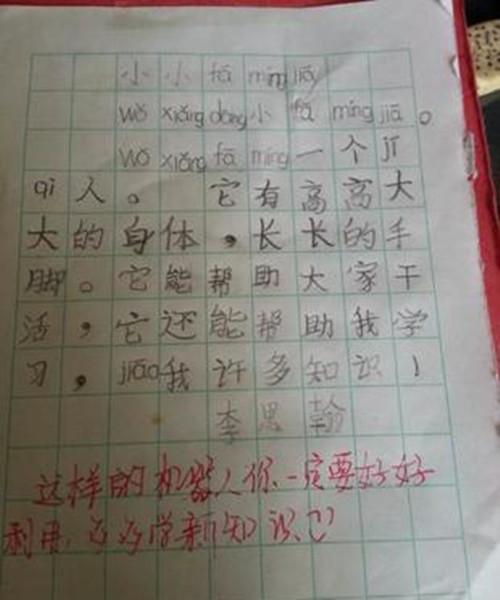 小小fā míng jiā
wǒ xiǎng dāng小fā míng jiā。
wǒ xiǎng fā míng一个jī
qì人。它有高高大
大的身体，长长的手
脚。它能帮助大家干
活，它还能帮助我学
习，jiāo我许多知识！
李思翰
这样的机器人你一定要好好
利用，学新知识